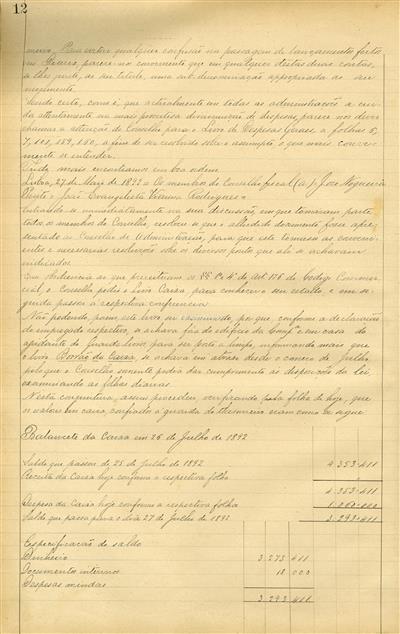 12
meiro. Para evitar qualquer confusão na passagem de lançamentos feitos
no Diario, parece-nos conveniente que em qualquer destas duas contas,
se lhes ponha, de seu titulo, uma sub-denominação appropriada ao seu
seguimento.
Sendo certo, como é, que actualmente em todas as administrações se cui-
da attentamente na mais proveitosa diminuição de despesa, parece-nos dever
chamar a attenção do Conselho para o Livro de Despesas Geraes, a folhas 5,
7, 101, 159, 180, a fim de ser resolvido sobre o assumpto o que mais conveni-
ente se entender.
Tudo mais encontramos em boa ordem.
Lisboa, 27 de Maio de 1892 = Os membros do Conselho fiscal (aa) José Nogueira
Pinto = João Evangelista Vianna Rodrigues =
Entrando-se immediatamente na sua discussão, em que tomaram parte
todos os membros do Conselho, resolveu-se que o alludido documento fosse apre-
sentado ao Conselho de Administração, para que este tomasse as conveni-
entes e necessarias resoluções sobre os diversos pontos que ali se achavam
indicados.
Em obediencia ao que preceituam os §§ 1º e 4º do Art. 176 do Codigo Commer-
cial, o Conselho pediu o Livro Caixa, para conhecer o seu estado, e em se-
guida passar á respectiva conferencia.
Não podendo, porem este livro ser examinado, por que, conforme a declaração
do empregado respectivo, se achava fóra do edificio da Compª e em casa do
ajudante do guarda livros para ser posto a limpo, informando mais que
o livro Borrão da Caixa, se achava em atrazo desde o começo de Julho,
pelo que o Conselho somente podia dar cumprimento ás disposições da lei,
examinando as folhas diarias.
Nesta conjunctura, assim procedeu, verificando pela folha de hoje, que
os valores em caixa, confiados á guarda do thesoureiro eram como se segue
Balancete da Caixa em 26 de Julho de 1892
Saldo que passou de 25 de Julho de 1892 4.353.411
Receita da Caixa hoje conforme a respectiva folha "
4.353.411
Despesa da Caixa hoje conforme a respectiva folha 1.060.000
Saldo que passa para o dia 27 de Julho de 1892 3.293.411
Especificação do saldo
Dinheiro 3.273 411
Documentos internos 18 000
Despesas miudas
3.293 411